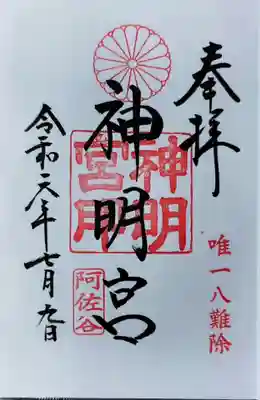 奉拝
唯一八難除
神明宮
神明宮
阿佐谷
令和六年七月九日